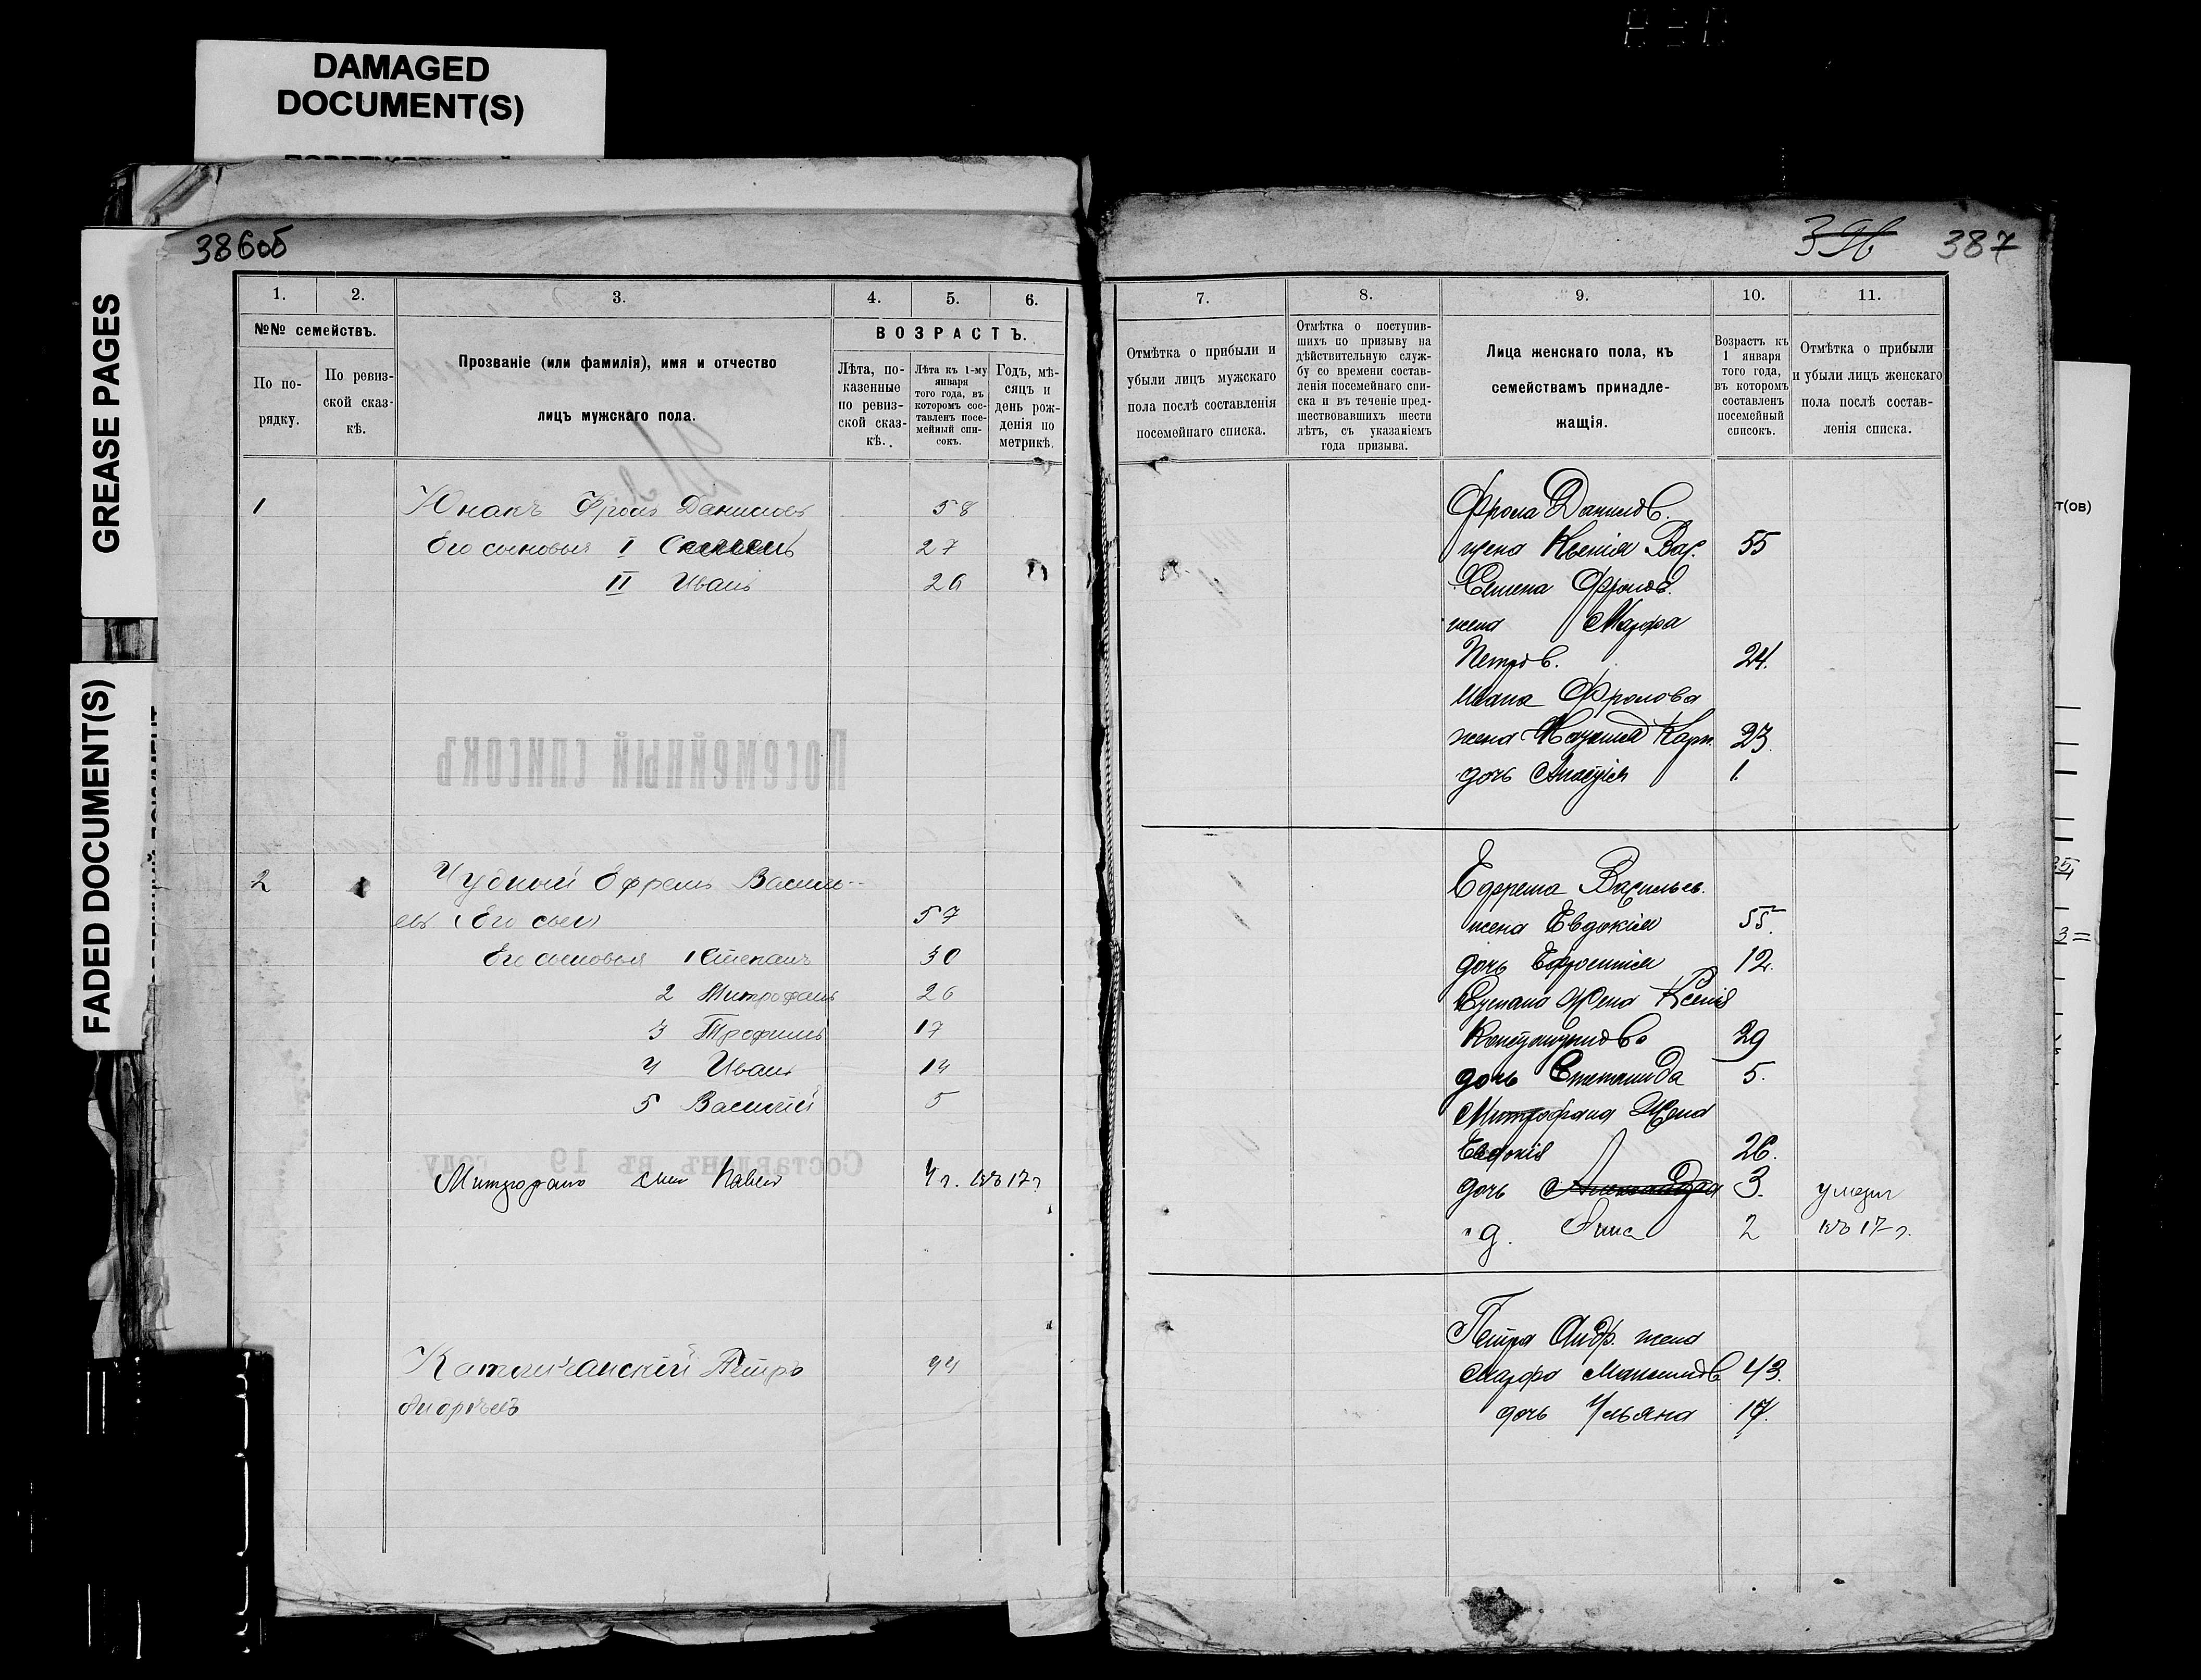 DAMAGED
DOCUMENT(S)
GREASE PAGES
FADED DOCUMENT(S)
386об
396 387
1. 2. 3. 4. 5. 6.
№№ семействъ.
По по-
рядку.
По ревиз-
ской сказ-
кѣ.
Прозваніе (или фамилія), имя и отчество
лицъ мужскаго пола.
ВОЗРАСТЪ.
Лѣта, по-
казенные
по ревиз-
ской сказ-
кѣ.
Лѣта къ 1-му
января
того года, въ
которомъ сос-
тавленъ посе-
мейный спи-
сокъ.
Годъ, мѣ-
сяцъ и
день рож-
денія по
метрикѣ.
1 Юнакъ Фролъ Даниловъ 58
Его сыновья I 27
II Иванъ 26
2 Чудный Ефремъ Василь-
евъ (Его сын) 57
Его сыновья 1 Степанъ 30
2 Митрофанъ 26
3 Трофимъ 17
4 Иванъ 14
5 Василій 5
Митрофана сын Павел 4 г. въ 17 г
Петръ 44
Андрѣевъ
7. 8. 9. 10. 11.
Отмѣтка о прибыли и
убыли лицъ мужскаго
пола послѣ составленія
посемейнаго списка.
Отмѣтка о поступив-
шихъ по призыву на
дѣйствительную служ-
бу со времени состав-
ленія посемейнаго спи-
ска и въ теченіе пред-
шествовавшихъ шести
лѣтъ, съ указаніемъ
года призыва.
Лица женскаго пола, къ
семействамъ принадле-
жащія.
Возрастъ къ
1 января
того года,
въ которомъ
составленъ
посемейный
списокъ.
Отмѣтка о прибыли
и убыли лицъ женскаго
пола послѣ состав-
ленія списка.
Фрола Данилов.
жена Ксенія Вас. 55
Семена Фролов.
жена Марфа
Петров. 24.
Ивана Фролова
жена Карп. 23.
дочь 1.
Ефрема Васильев.
жена Евдокія 55.
дочь Ефросинія 12.
Степана жена Ксенія
Константинова 29
дочь Степанида 5.
Митрофана жена
Евдокія 26.
дочь Александра 3. умерл
д. Анна 2 въ 17 г.
Петра Андр. жена
Марфа Максимов 43.
дочь Ульяна 17.